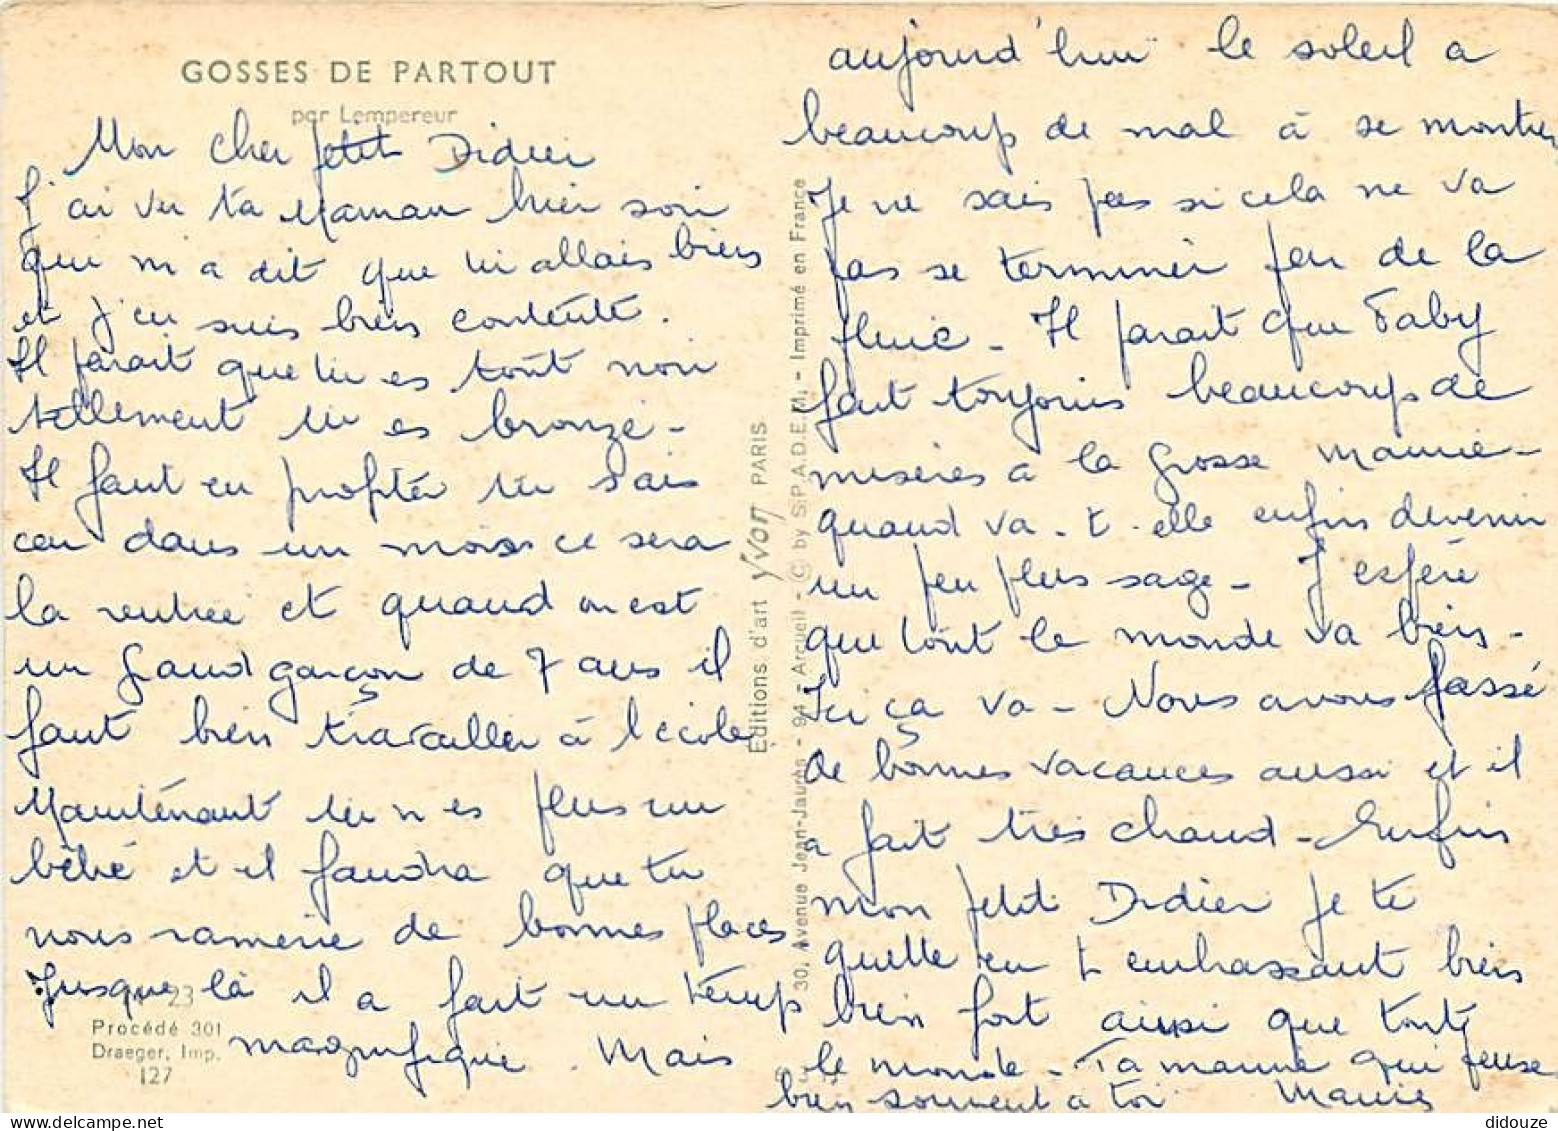 GOSSES DE PARTOUT
par Lempereur
Mon cher petit Didier
J'ai vu ta Maman hier soir
qui m'a dit que tu allais bien
et j'en suis bien contente.
Il parait que tu es tout noir
tellement tu es bronzé -
Il faut en profiter tu sais
car dans un mois ce sera
la rentrée et quand on est
un grand garçon de 7 ans il
faut bien travailler à l'école
Maintenant tu n'es plus un
bébé et il faudra que tu
nous ramène de bonnes places
Jusque là il a fait un temps
magnifique. Mais
23
Procédé 301
Draeger, Imp.
127
Editions d'art yvon PARIS
30, Avenue Jean-Jaurès - 94 - Arcueil - © by S.P.A.D.E.M. - Imprimé en France
aujourd'hui le soleil a
beaucoup de mal à se montrer
Je ne sais pas si cela ne va
pas se terminer par de la
pluie - Il parait que Faby
fait toujours beaucoup de
misères a la grosse mamie -
quand va-t-elle enfin devenir
un peu plus sage - J'espère
que tout le monde va bien -
Ici ça va - Nous avons passé
de bonnes vacances aussi et il
a fait très chaud - Enfin
mon petit Didier je te
quitte en t'embrassant bien
bien fort ainsi que tout
le monde - Ta mamie qui pense
bien souvent à toi Mamie
didouze